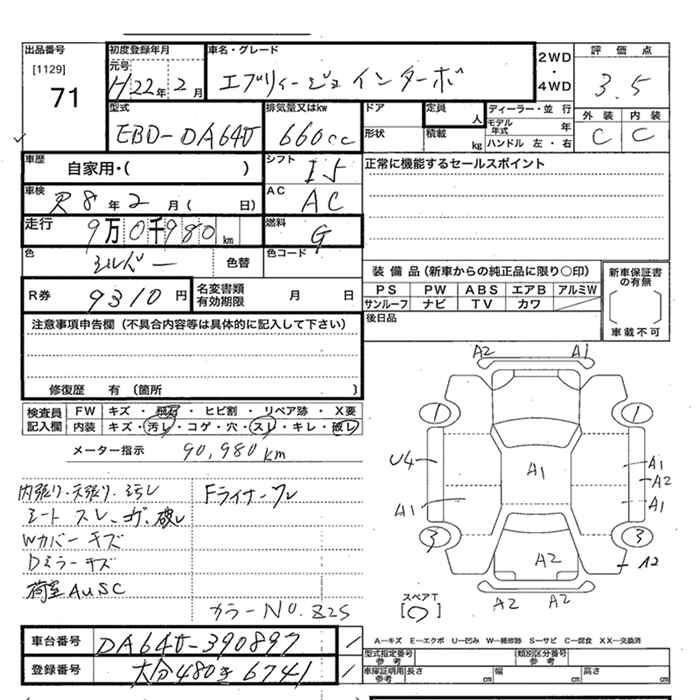 出品番号
[1129]
71
初度登録年月
元号
H22年2月
車名・グレード
エブリィージョインターボ
2WD
・
4WD
評価点
3.5
外装 内装
C C
型式
EBD-DA64V
排気量又はkw
660cc
ドア
形状
定員
人
積載
kg
ディーラー・並行
モデル年式 年
ハンドル 左・右
車歴
自家用・( )
シフト
I5
正常に機能するセールスポイント
車検
R8年2月( 日)
AC
AC
走行
9万0千980km
燃料
G
色
シルバー
色替
色コード
R券
9310円
名変書類
有効期限
月 日
装備品(新車からの純正品に限り○印)
PS PW ABS エアB アルミW
サンルーフ ナビ TV カワ
後日品
新車保証書
の有無
車載不可
注意事項申告欄(不具合内容等は具体的に記入して下さい)
修復歴 有(箇所 )
検査員
記入欄
FW キズ・飛石・ヒビ割・リペア跡・X要
内装 キズ・汚レ・コゲ・穴・スレ・キレ・破レ
メーター指示 90,980km
内張り・天張り・汚レ
シート スレ、コゲ、破レ
Wカバーキズ
Dミラーキズ
荷室AuSC
Fライナーワレ
カラーNo.825
A2 A1
1 1
U4 A1 A1
A2
A1 A1
3 3
A2 A2
A2 A2
スペアT
A―キズ E―エクボ U―凹み W―補修跡 S―サビ C―腐食 XX―交換済
車台番号
DA64V-390897
登録番号
大分480き6741
型式指定番号
参考
類別区分番号
参考
車庫証明用
参考
長さ cm 幅 cm 高さ cm